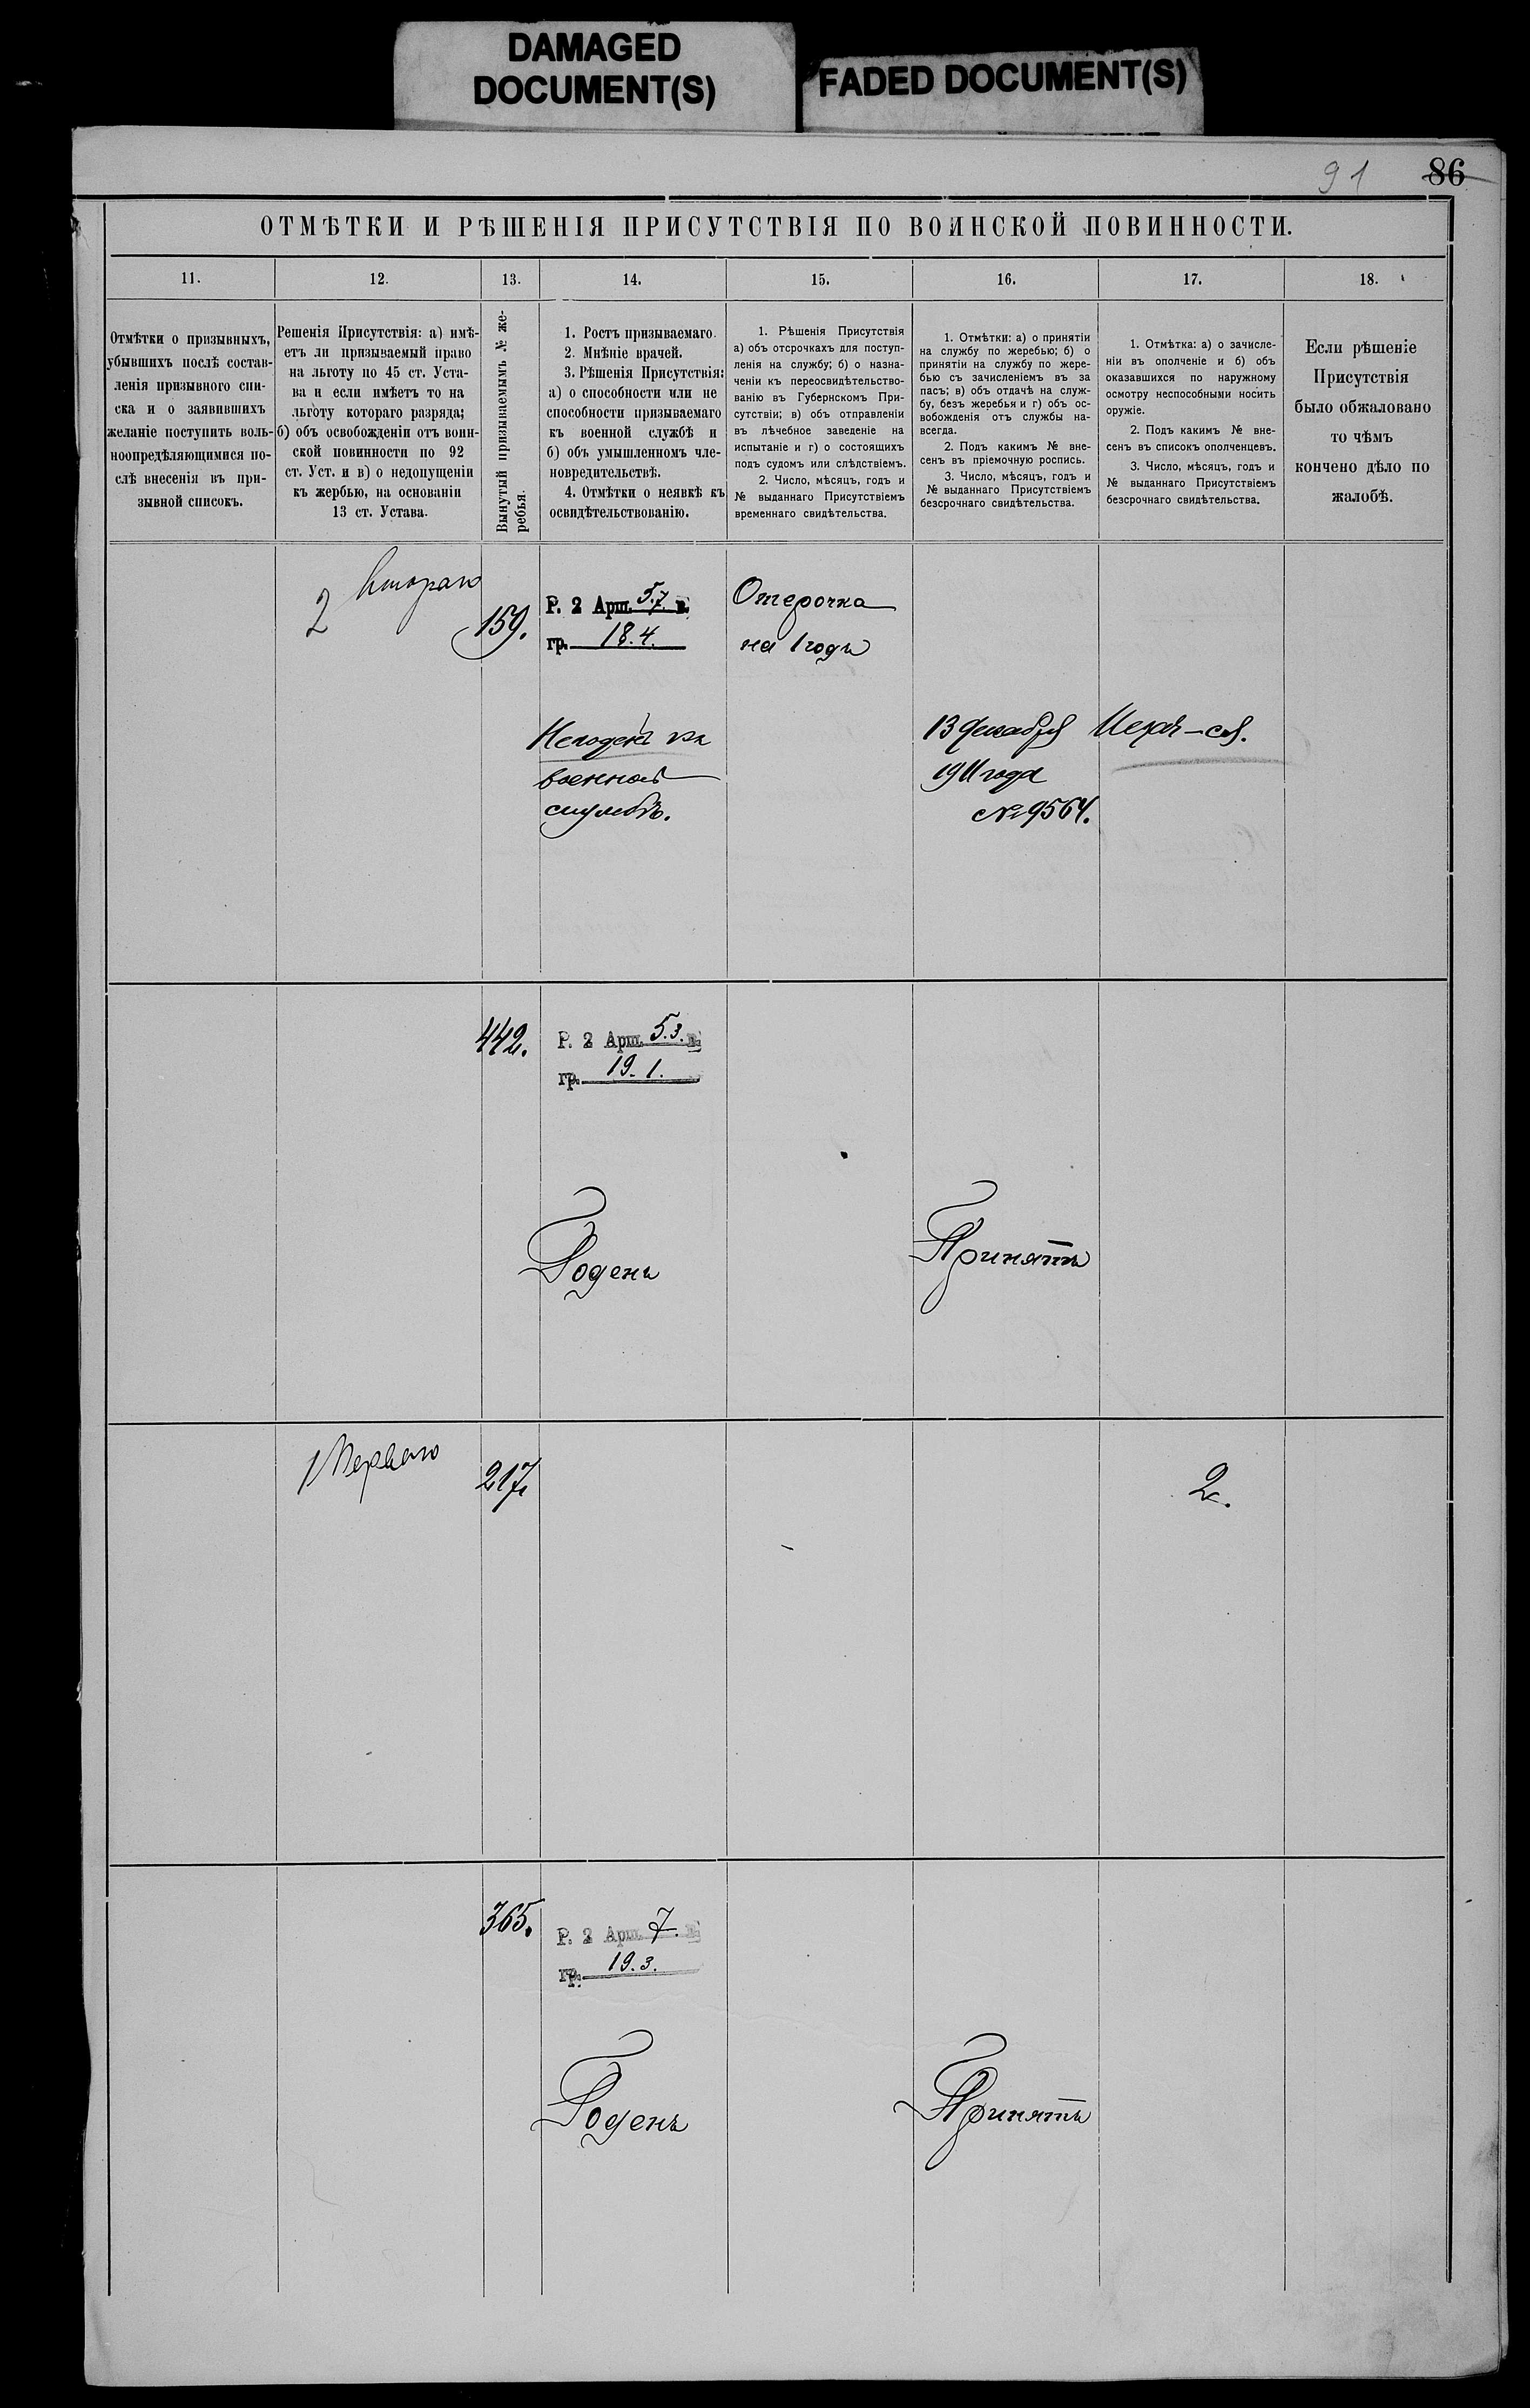 DAMAGED
DOCUMENT(S)
FADED DOCUMENT(S)
91 86
ОТМѢТКИ И РѢШЕНІЯ ПРИСУТСТВІЯ ПО ВОИНСКОЙ ПОВИННОСТИ.
11.
12.
13.
14.
15.
16.
17.
18.
Отмѣтки о призывныхъ,
убывшихъ послѣ состав-
ленія призывного спи-
ска и о заявившихъ
желаніе поступить воль-
ноопредѣляющимися по-
слѣ внесенія въ при-
зывной списокъ.
Решенія Присутствія: а) имѣ-
етъ ли призываемый право
на льготу по 45 ст. Уста-
ва и если имѣетъ то на
льготу котораго разряда;
б) объ освобожденіи отъ воин-
ской повинности по 92
ст. Уст. и в) о недопущеніи
къ жербью, на основаніи
13 ст. Устава.
Вынутый призываемымъ № же-
ребья.
1. Ростъ призываемаго.
2. Мнѣніе врачей.
3. Рѣшенія Присутствія:
а) о способности или не
способности призываемаго
къ военной службѣ и
б) объ умышленномъ чле-
новредительствѣ.
4. Отмѣтки о неявкѣ къ
освидѣтельствованію.
1. Рѣшенія Присутствія
а) объ отсрочкахъ для поступ-
ленія на службу; б) о назна-
ченіи къ переосвидѣтельство-
ванію въ Губернскомъ При-
сутствіи; в) объ отправленіи
въ лѣчебное заведеніе на
испытаніе и г) о состоящихъ
подъ судомъ или слѣдствіемъ.
2. Число, мѣсяцъ, годъ и
№ выданнаго Присутствіемъ
временнаго свидѣтельства.
1. Отмѣтки: а) о принятіи
на службу по жеребью; б) о
принятіи на службу по жере-
бью съ зачисленіемъ въ за
пасъ; в) объ отдачѣ на служ-
бу, безъ жеребья и г) объ ос-
вобожденія отъ службы на-
всегда.
2. Подъ какимъ № вне-
сенъ въ пріемочную роспись.
3. Число, мѣсяцъ, годъ и
№ выданнаго Присутствіемъ
безсрочнаго свидѣтельства.
1. Отмѣтка: а) о зачисле-
ніи въ ополченіе и б) объ
оказавшихся по наружному
осмотру неспособными носить
оружіе.
2. Подъ какимъ № вне-
сенъ въ списокъ ополченцевъ.
3. Число, мѣсяцъ, годъ и
№ выданнаго Присутствіемъ
безсрочнаго свидѣтельства.
Если рѣшеніе
Присутствія
было обжаловано
то чѣмъ
кончено дѣло по
жалобѣ.
2 Второго
159.
Р. 2 Арш. 5.7. в.
гр. 18.4.
Отсрочка
на 1 годъ
Негоденъ къ
военной
службѣ.
13 декабря
1911 года
№ 9564.
442.
Р. 2 Арш. 5.3. в.
гр. 19.1.
Годенъ
Принятъ
1 Перваго
217.
2.
365.
Р. 2 Арш. 7. в.
гр. 19.3.
Годенъ
Принятъ